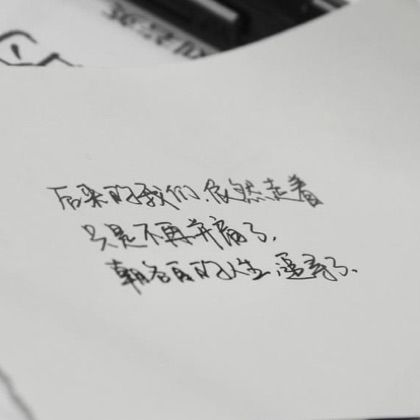 后来的我们,依然走着
只是不再并肩了,
朝各自的人生,追寻了.